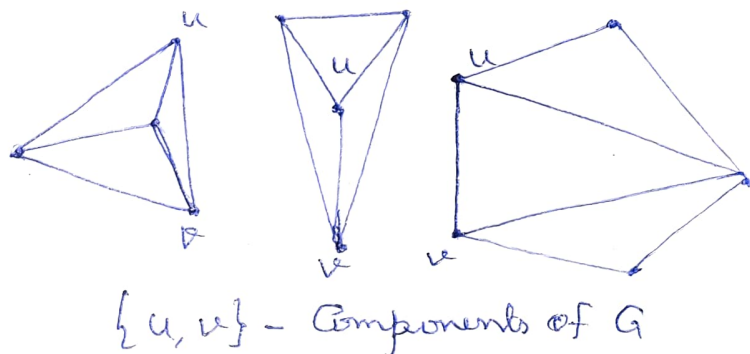 u
v
u
v
u
v
{u, v} - Components of G